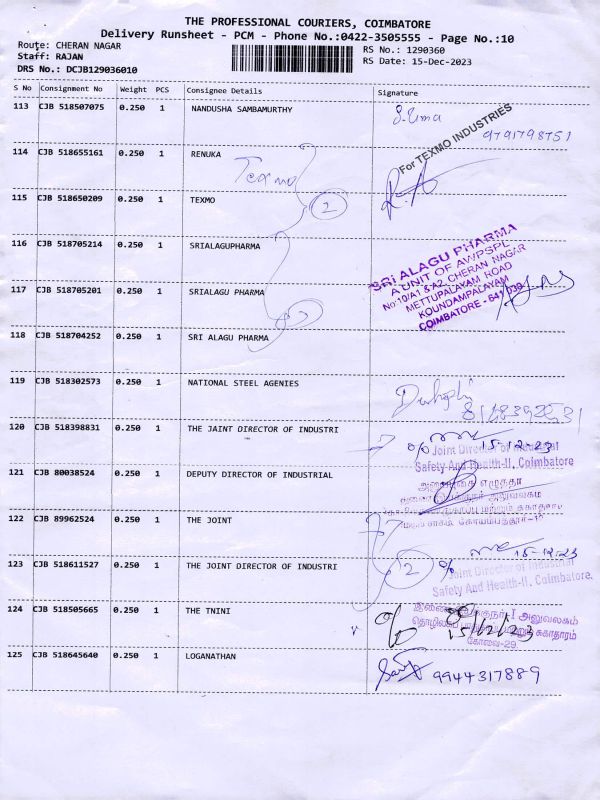 THE PROFESSIONAL COURIERS, COIMBATORE
Delivery Runsheet - PCM - Phone No.:0422-3505555 - Page No.:10
Route: CHERAN NAGAR
RS No.: 1290360
Staff: RAJAN
RS Date: 15-Dec-2023
DRS No.: DCJB129036010
S No Consignment No Weight PCS Consignee Details Signature
113 CJB 518507075 0.250 1 NANDUSHA SAMBAMURTHY S. Uma
9791798751
For TEXMO INDUSTRIES
114 CJB 518655161 0.250 1 RENUKA
Texmo
115 CJB 518650209 0.250 1 TEXMO
2
116 CJB 518705214 0.250 1 SRIALAGUPHARMA
SRI ALAGU PHARMA
A UNIT OF AWPSPL
No:10/A1 & A2, CHERAN NAGAR
METTUPALAYAM ROAD
KOUNDAMPALAYAM
COIMBATORE - 641 030
117 CJB 518705201 0.250 1 SRIALAGU PHARMA
118 CJB 518704252 0.250 1 SRI ALAGU PHARMA
119 CJB 518302573 0.250 1 NATIONAL STEEL AGENIES
120 CJB 518398831 0.250 1 THE JOINT DIRECTOR OF INDUSTRI
15-12-23
Joint Director of Industrial
Safety And Health-II, Coimbatore
121 CJB 80038524 0.250 1 DEPUTY DIRECTOR OF INDUSTRIAL
122 CJB 89962524 0.250 1 THE JOINT
15-12-23
123 CJB 518611527 0.250 1 THE JOINT DIRECTOR OF INDUSTRI
2
Joint Director of Industrial
Safety And Health-II, Coimbatore.
124 CJB 518505665 0.250 1 THE TNINI
15/12/23
கோவை-29.
125 CJB 518645640 0.250 1 LOGANATHAN
9944317889